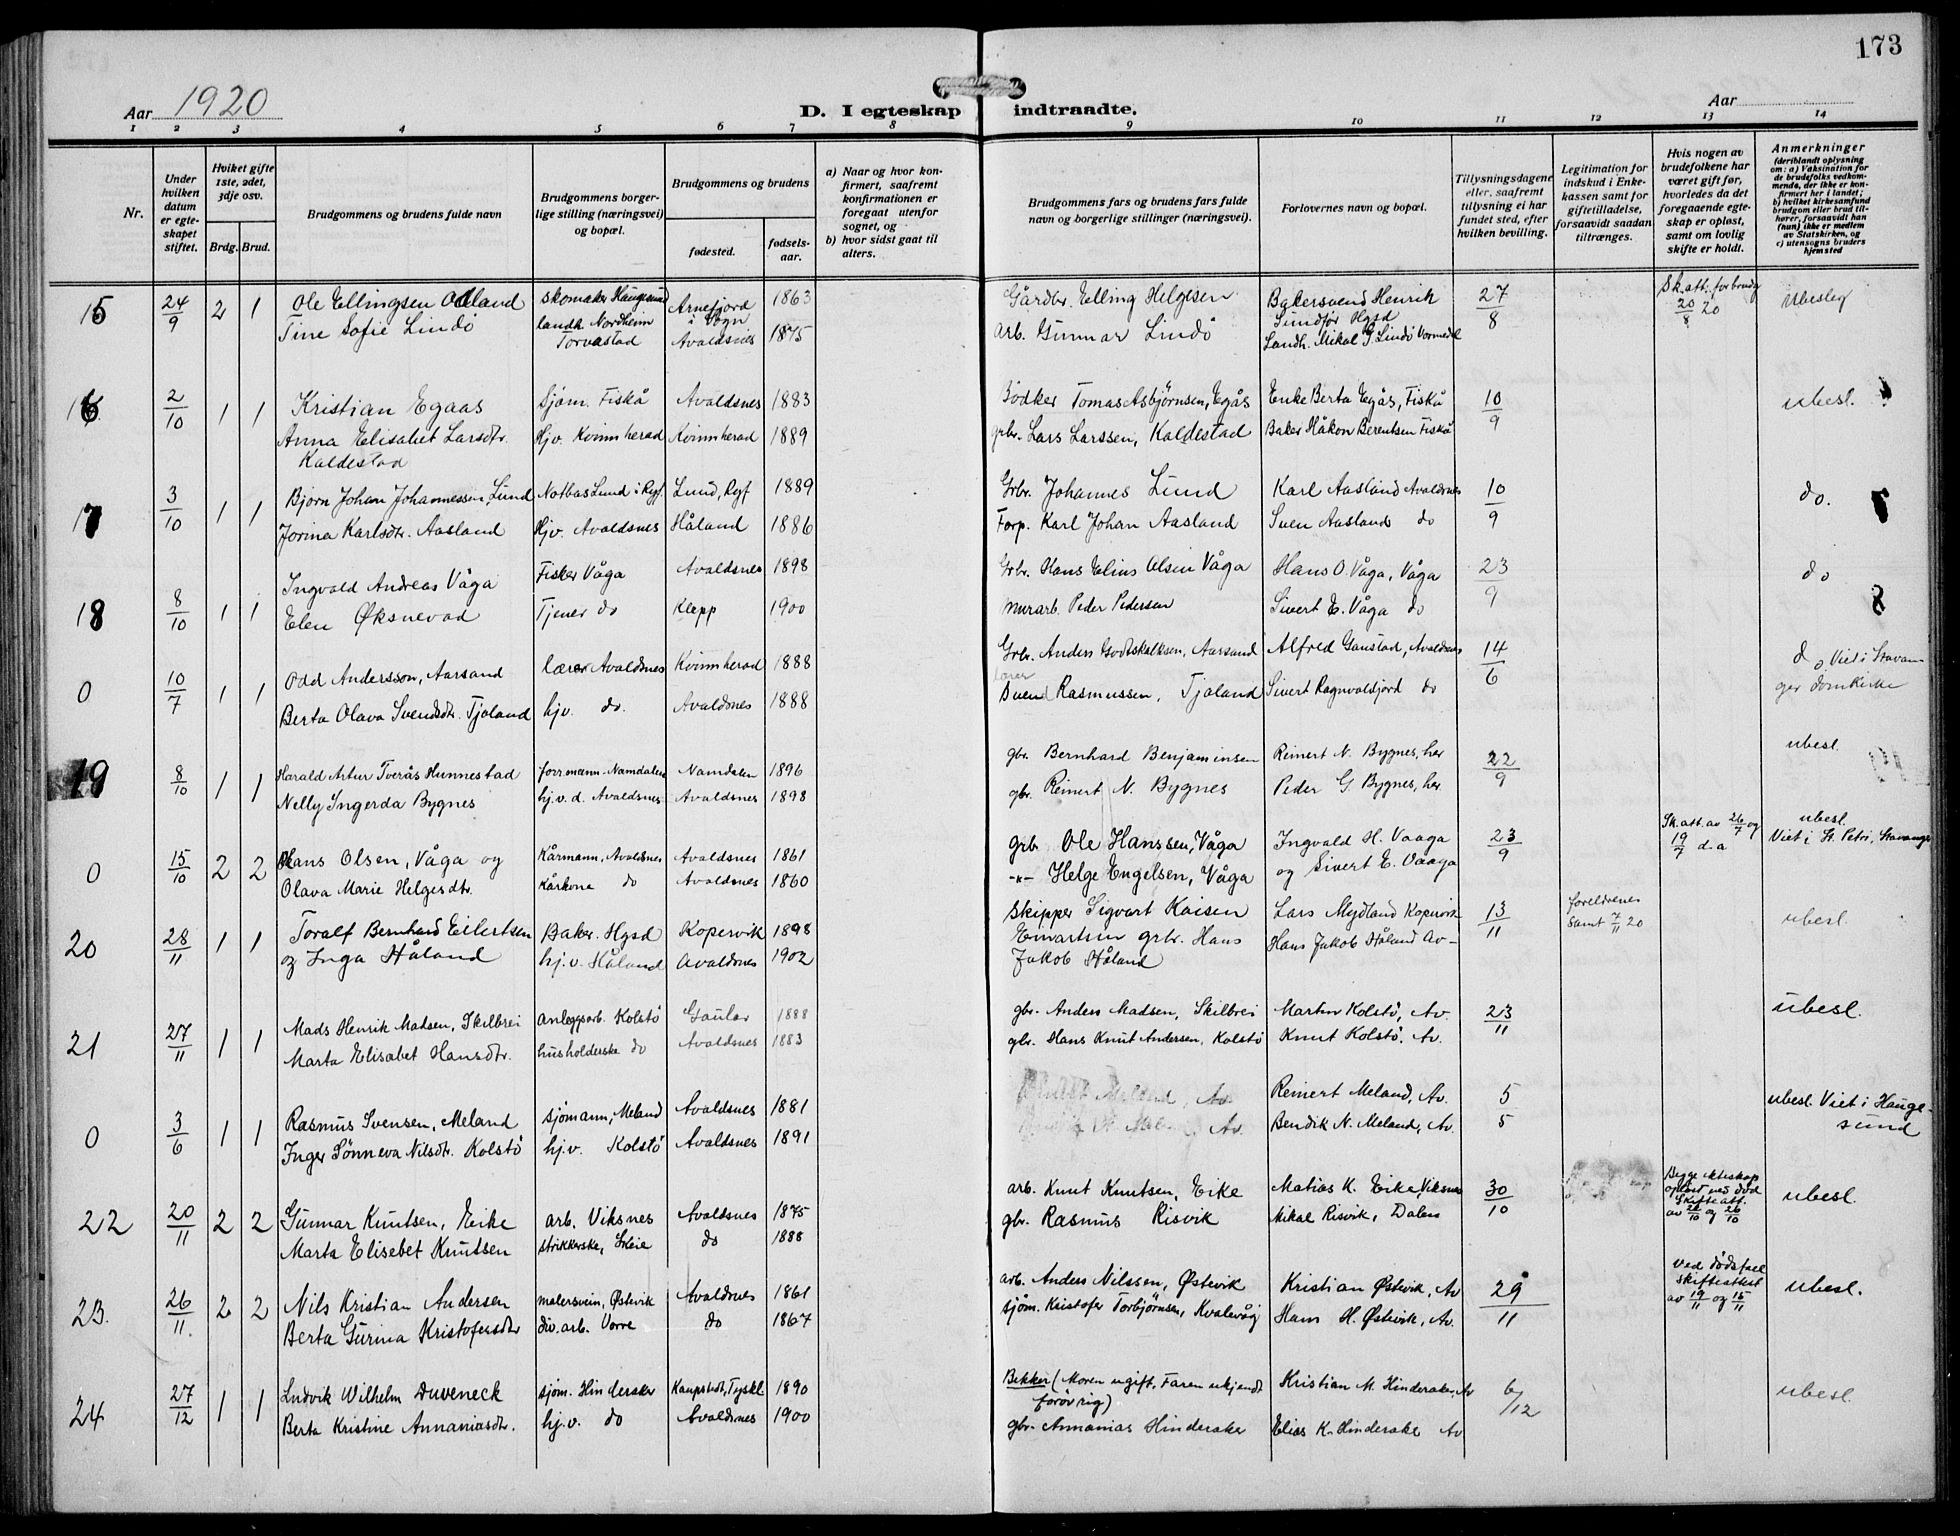 173
Aar 1920
D. I egteskap indtraadte.
Aar
1 2 3 4 5 6 7 8 9 10 11 12 13 14
Nr.
Under hvilken datum er egteskapet stiftet.
Hviket gifte 1ste, 2det, 3dje osv.
Brdg. Brud.
Brudgommens og brudens fulde navn
Brudgommens borgerlige stilling (næringsvei) og bopæl.
Brudgommens og brudens
fødested.
fødselsaar.
a) Naar og hvor konfirmert, saafremt konfirmationen er foregaat utenfor sognet, og
b) hvor sidst gaat til alters.
Brudgommens fars og brudens fars fulde navn og borgerlige stillinger (næringsvei).
Forlovernes navn og bopæl.
Tillysningsdagene eller, saafremt tillysning ei har fundet sted, efter hvilken bevilling.
Legitimation for indskud i Enkekassen samt for giftetilladelse, forsaavidt saadan tiltrænges.
Hvis nogen av brudefolkene har været gift før, hvorledes da det foregaaende egteskap er opløst, samt om lovlig skifte er holdt.
Anmerkninger
(deriblandt oplysning om: a) Vaksination for de brudefolks vedkommende, der ikke er konfirmert her i landet; b) hvilket kirkesamfund brudgom eller brud tilhører, forsaavidt han (hun) ikke er medlem av Statskirken, og c) utensogns bruders hjemsted
15 24/9 2 1 Ole Ellingsen skomaker Haugesund Arnefjord i Sogn 1863 Gårdbr. Elling Helgesen Bakersvend Henrik Sundfør Hgsd 27/8 Sk.att. for brudg 20/8 20 Ubesleg
Tine Sofie Lindö landh. Nordheim Torvastad Avaldsnes 1875 arb. Gunnar Lindö Landh. Mikal G. Lindö Vormedal
16 2/10 1 1 Kristian Egaas Sjøm. Fiskå Avaldsnes 1883 Bödker Tomas Asbjörnsen, Egås Enke Berta Egås, Fiskå 10/9 ubesl.
Anna Elisabet Larsdtr. Kaldestad Hjv. Kvinnherad Kvinnherad 1889 grbr. Lars Larssen, Kaldestad Baker Håkon Berentsen Fiskå
17 3/10 1 1 Bjorn Johan Johannessen, Lund Notbas Lund i Ryf. Lund, Ryf 1889 Grbr. Johannes Lund Karl Aasland Avaldsnes 10/9 do.
Jorina Karlsdtr. Aasland Hjv. Avaldsnes Håland 1886 Forp. Karl Johan Aasland Sven Aasland do
18 8/10 1 1 Ingvald Andreas Våga Fisker Våga Avaldsnes 1898 Grbr. Hans Elius Olsen Våga Hans O. Våga, Våga 23/9 do
Elen Øksnevad Tjener do Klepp 1900 Murarb. Peder Pedersen Sivert E. Våga do
0 10/7 1 1 Odd Andersson, Aarsand lærer Avaldsnes Kvinnherad 1888 Grbr. Anders Godtskalksen, Aarsand Alfred Gaustad, Avaldsnes 14/6 do Viet i Stavanger domkirke
Berta Olava Svendsdtr. Tjoland hjv. do. Avaldsnes 1888 lærer Svend Rasmussen, Tjoland Sivert Ragnvaldsjord do
19 8/10 1 1 Harald Artur Tverås Hunnestad forrmann Namdalen Namdalen 1896 gbr. Bernhard Benjaminsen Reinert N. Bygnes, her 22/9 ubesl.
Nelly Ingerda Bygnes hj.v.d. Avaldsnes Avaldsnes 1898 gbr. Reinert N. Bygnes Peder G Bygnes, her
0 15/10 2 2 Hans Olsen, Våga og Kårmann, Avaldsnes Avaldsnes 1861 grbr Ole Hanssen, Våga Ingvald H. Vaaga 23/9 Sk.att. av 26/7 og 19/7 d.a ubesl. Viet i St. Petri, Stavanger
Olava Marie Helgesdtr. Kårkone do Avaldsnes 1860 -"- Helge Engelsen, Våga og Sivert E. Vaaga
20 28/11 1 1 Toralf Bernhard Eilertsen Baker. Hgsd Kopervik 1898 Skipper Sigvart Kaisen Lars Mydland Kopervik 13/11 foreldrenes samt 7/11 20 ubesl.
og Inga Håland hj.v. Håland Avaldsnes 1902 grbr. Hans Jakob Håland Hans Jakob Håland Av-
21 27/11 1 1 Mads Henrik Madsen, Skilbrei anleggsarb. Kolstö Gaular 1888 gbr. Anders Madsen, Skilbrei Martin Kolstö, Av. 23/11 ubesl.
Marta Elisabet Hansdtr. husholderske do Avaldsnes 1883 gbr. Hans Knut Andersen, Kolstö Knut Kolstö, Av.
0 3/6 1 1 Rasmus Svensen, Meland sjömann, Meland Avaldsnes 1881 Meland, Av. Reinert Meland, Av. 5/5 ubesl. Viet i Haugesund
Inger Sönneva Nilsdtr. Kolstö hj.v. Kolstö Avaldsnes 1891 Av. Bendik N. Meland, Av.
22 20/11 2 2 Gunnar Knutsen, Eike arb. Viksnes Avaldsnes 1875 arb. Knut Knutsen, Eike Matias K. Eike, Viksnes 30/10 Begge ekteskap opløst ved död Skifteatt. av 26/10 og 26/10 ubesl.
Marta Elisebet Knutsen strikkerske, Skeie do 1888 gbr. Rasmus Risvik Mikal Risvik, Dalen
23. 26/11. 2 2 Nils Kristian Andersen malersvein, Østevik Avaldsnes 1861 arb. Anders Nilssen, Østevik Kristian Østevik, Av 29/11 ved dödsfall skifteattest av 19/11 og 15/11 ubesl.
Berta Gurina Kristofersdtr div. arb. Vorre do 1867 sjöm. Kristofer Torbjörnsen, Kvalevåg Hans H. Østevik, Av.
24 27/12 1 1 Ludvik Wilhelm Duveneck sjöm. Hinderaker Kaupstedt, Tyskl 1890 Bekker (Moren ugift, Faren ukjendt forövrig) Kristian M. Hinderaker, Av 6/12 ubesl.
Berta Kristine Annaniasdtr. hj.v. do Avaldsnes 1900 gbr. Annanias Hinderaker Elias K. Hinderaker Av